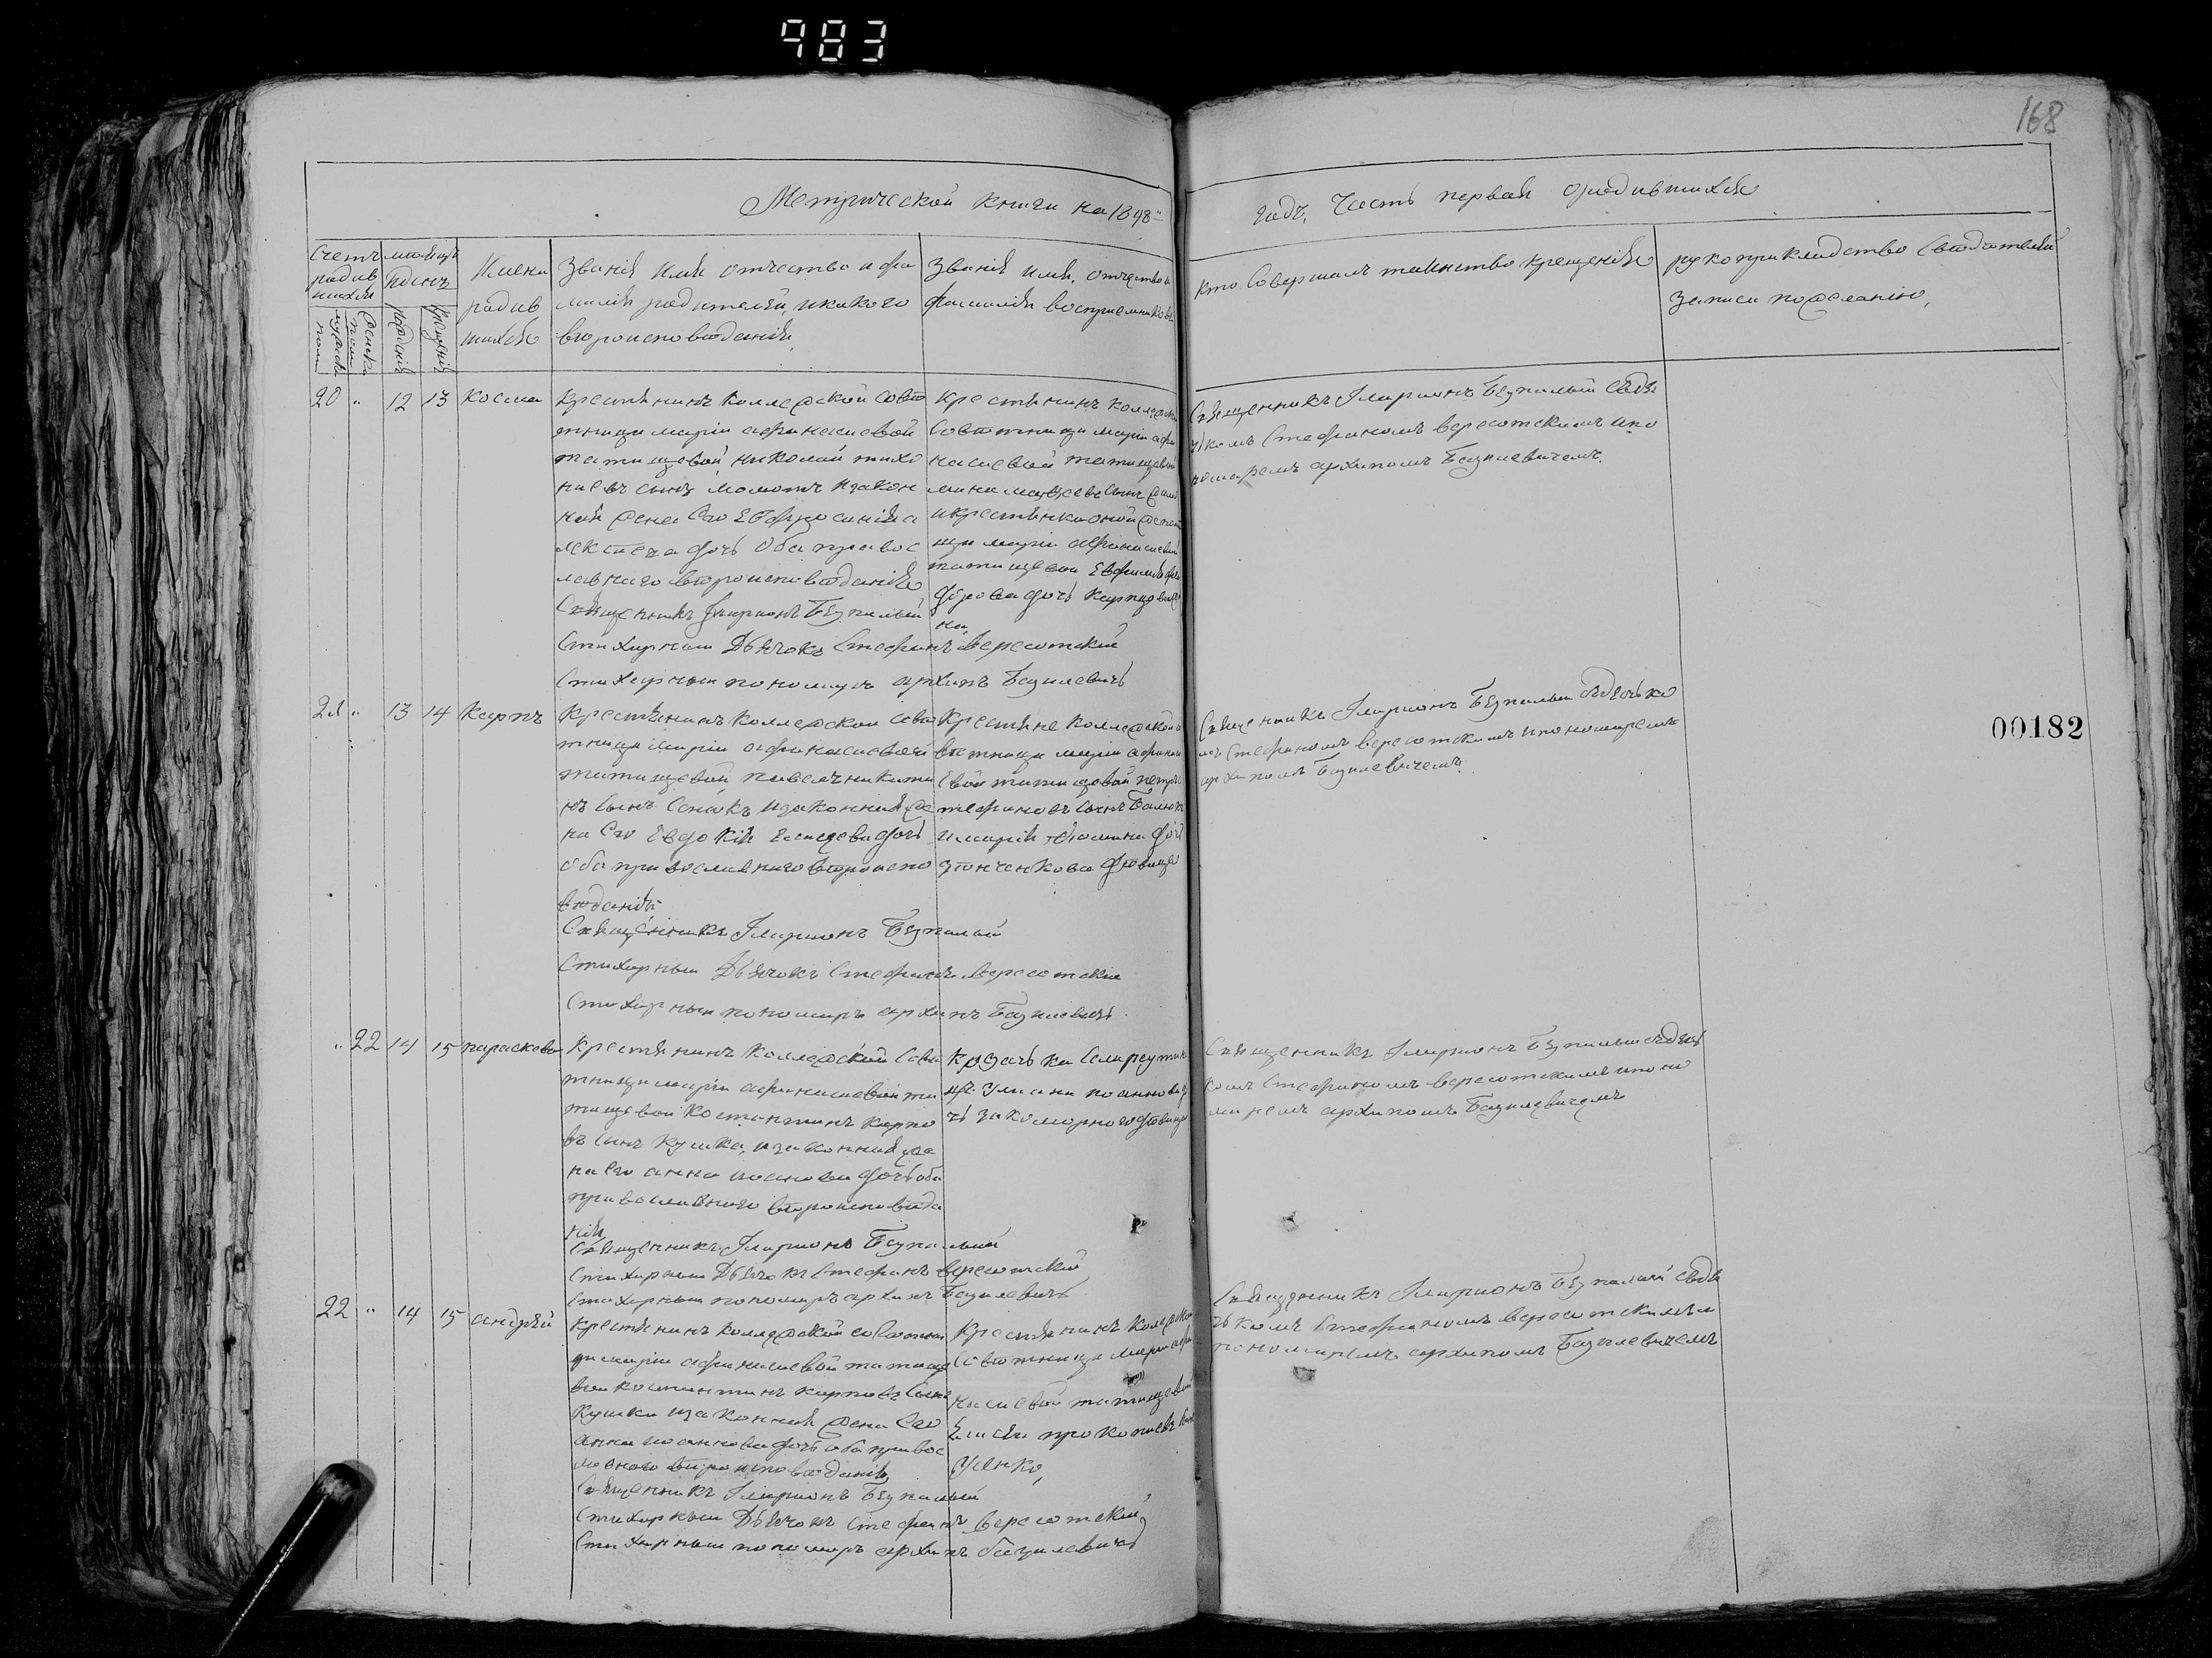 983
168
Метрической книги на 1848й
годъ, Часть первая о родившихся
Счетъ родившихся
мужеска полу
женска полу
месяцъ и день
рожденія
крещенія
Имена родившихся
Званія имя отчество и фамилія родителей, и какого вѣроисповѣданія
Званія имя, отчество и фамилія воспріемниковъ
кто Совершалъ таинство крещенія
рукоприкладство Свѣдѣтелей записи по желанію,
20 „ 12 13 Косма
крестьянинъ коллежской совѣ
тницы маріи афанасиевой
татищевой, николай тихо
ниевъ сынъ и закон
ная жена Его Евфросинія а
лексѣева дочь Оба правос
лавнаго вѣроисповѣданія
Священникъ Иларионъ Безпалый
Стихарный Дьячокъ Стефанъ вересотский
Стихарный пономарь архипъ Базилевичъ
крестьянинъ коллежской
Совѣтницы маріи афа
насиевой татищевой
мина сынъ
и крестьянка оной же
цы маріи афанасиевой
татищевой Евфимія фе
дорова дочь
на
Священникъ Иларионъ Безпалый съ дья
чкомъ Стефаномъ вересотскимъ и по
номаремъ архипомъ Базилевичемъ.
21 „ 13 14 Карпъ
Крестьянинъ коллежской совѣ
тницы маріи афанасиевой
татищевой, павелъ никити
нъ сынъ и законная же
на Его Евдокія дочь
оба православнаго вѣроиспо
вѣданія
Священникъ Иларионъ Безпалый
Стихарный Дьячокъ Стефанъ вересотский
Стихарный пономарь архипъ Базилевичъ
Крестьяне коллежской со
вѣтницы маріи афанаси
евой татищевой петръ
стефановъ сынъ
и марія фомина дочь
дѣвица
Священникъ Иларионъ Безпалый съ дьячко
мъ Стефаномъ вересотскимъ и пономаремъ
архипомъ Базилевичемъ.
00182
„ 22 14 15 параскева
Крестьянинъ коллежской Совѣ
тницы маріи афанасиевой та
тищевой Костантинъ карпо
въ сынъ Кушка, и законная же
на Его анна иоанова дочь оба
православнаго вѣроисповѣда
нія
Священникъ Иларионъ Безпалый
Стихарный Дьячокъ Стефанъ вересотский
Стихарный пономарь архипъ Базилевичъ
козачка
дѣвица
Священникъ Иларионъ Безпалый съ дьяч
комъ Стефаномъ вересотскимъ и поно
маремъ архипомъ Базилевичемъ
22 „ 14 15 андрей
Крестьянинъ коллежской совѣтни
цы маріи афанасиевой татище
вой костантинъ карповъ сынъ
Кушка и законная жена Его
анна иоаннова дочь оба правос
лавного вѣроисповѣданія,
Священникъ Иларионъ Безпалый
Стихарный Дьячокъ Стефанъ вересотский
Стихарный пономарь архипъ базилевичъ
Крестьянинъ колежской
Совѣтницы маріи афа
насиевой татищевой
прокопиевъ
Усенко,
Священникъ Иларионъ Безпалый съ дья
чкомъ Стефаномъ вересотскимъ и
пономаремъ архипомъ Базилевичемъ